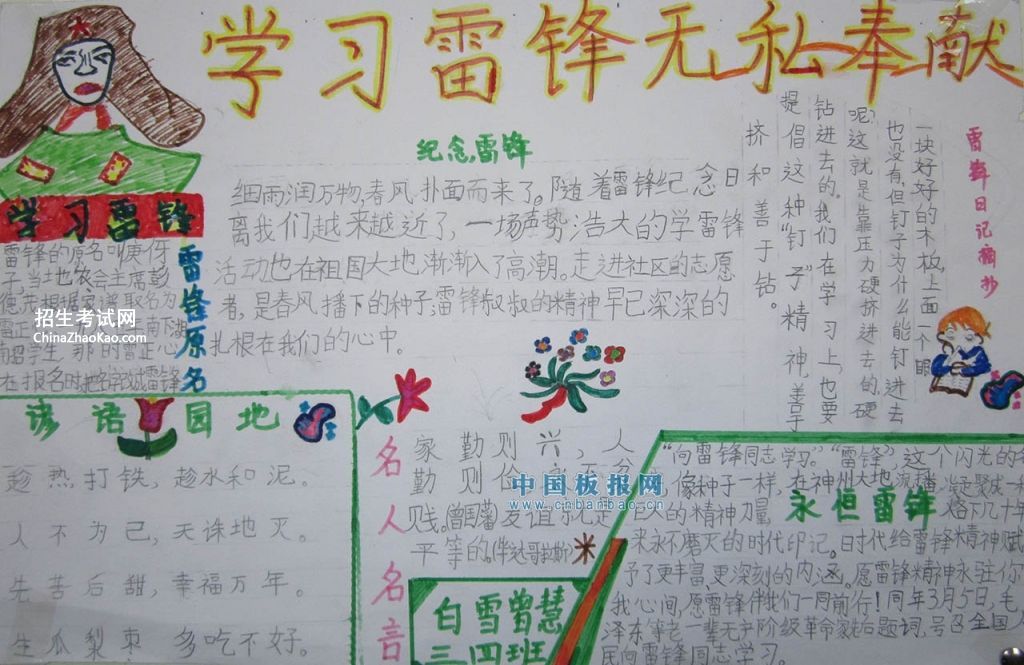 学习雷锋无私奉献
学习雷锋
雷锋原名
雷锋的原名叫庚伢
子,当地农会主席彭
德
取名为
雷正
招生考试网
ChinaZhaoKao.com
学生
那时雷正心
在报名时把名字改成雷锋
纪念雷锋
细雨润万物,春风扑面而来了。随着雷锋纪念日
离我们越来越近了,一场声势浩大的学雷锋
活动也在祖国大地渐渐入了高潮。走进社区的志愿
者,是春风播下的种子,雷锋叔叔的精神早已深深的
扎根在我们的心中。
雷锋日记摘抄
一块好好的木板,上面一个眼
也没有,但钉子为什么能钉进去
呢?这就是靠压力硬挤进去的,硬
钻进去的。我们在学习上,也要
提倡这种“钉子”精神,善于
挤和善于钻。
谚语园地
趁热打铁,趁水和泥。
人不为己,天诛地灭。
先苦后甜,幸福万年。
生瓜梨枣多吃不好。
名人名言
家勤则兴,人
勤则俭,永不贫
贱。(曾国藩)友谊就是
平等的。
中国板报网
www.cnbanbao.cn
白雪曾慧
三四班
永恒雷锋
“向雷锋同志学习。”“雷锋”,这个闪光的名
像种子一样,在神州大地流播,
巨人的精神力量,
几十年
来永不磨灭的时代印记。时代给雷锋精神赋
予了更丰富,更深刻的内涵。愿雷锋精神永驻你
我心间,愿雷锋伴我们一同前行!同年3月5日,毛
泽东等老一辈无产阶级革命家先后题词,号召全国人
民向雷锋同志学习。